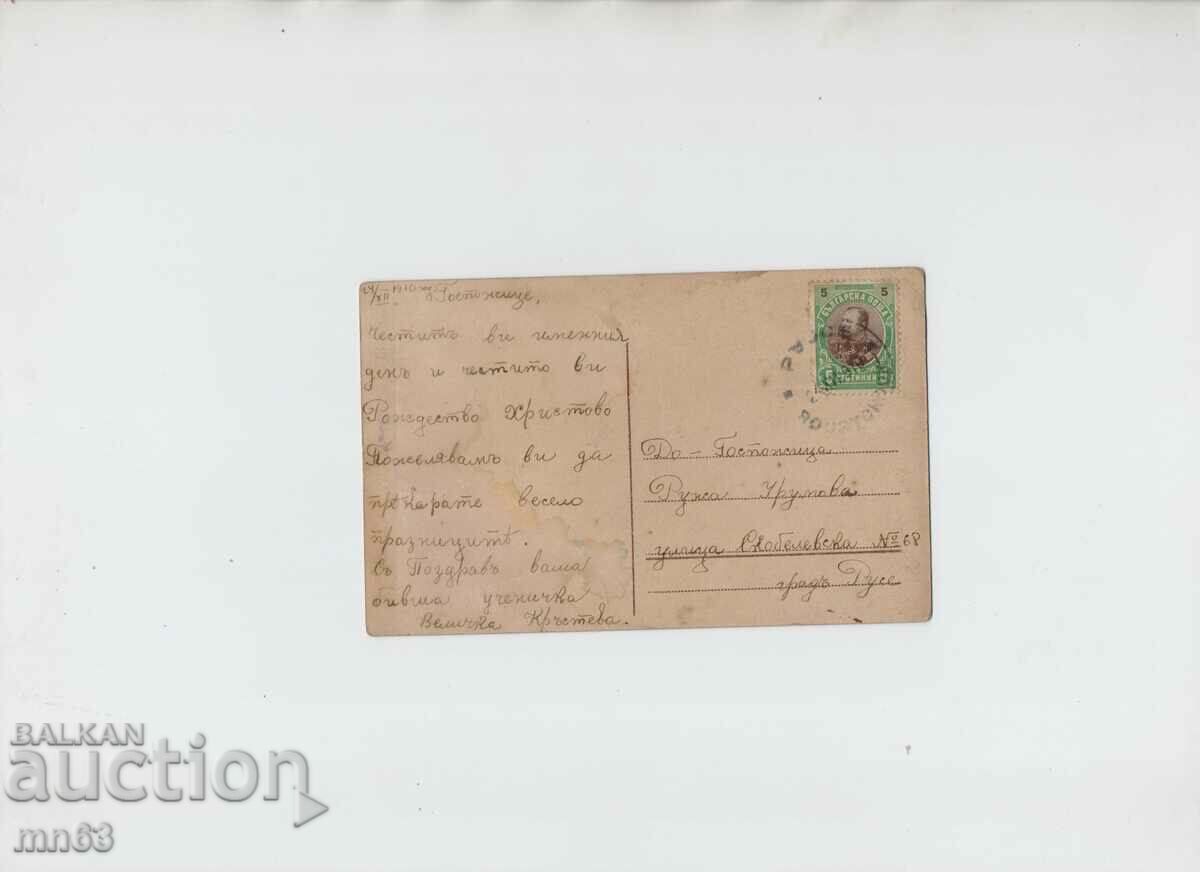 1910
Госпожице,
Честитъ ви именния
день и честито ви
Рождество Христово
Пожелавамъ ви да
прѣкарате весело
празницитѣ.
Съ Поздравъ ваша
бивша ученичка
Величка Кръстева.
5 5
БЪЛГАРСКА ПОЩА
5 СТОТИНКИ
До - Госпожица
Ружа Урумова
улица Скобелевска № 68
градъ Русе
BALKAN
auction
мп63